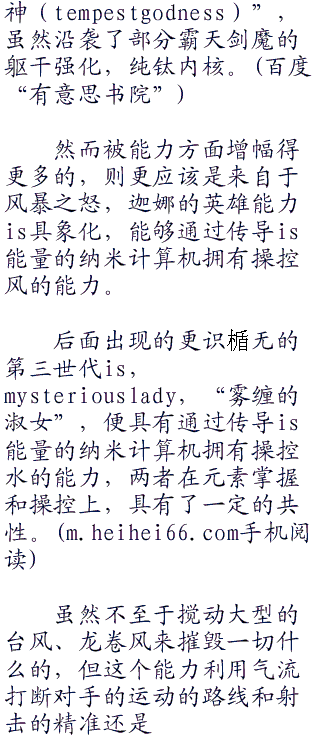 神（tempestgodness）”，
虽然沿袭了部分霸天剑魔的
躯干强化，纯钛内核。(百度
“有意思书院”)
然而被能力方面增幅得
更多的，则更应该是来自于
风暴之怒，迦娜的英雄能力
is具象化，能够通过传导is
能量的纳米计算机拥有操控
风的能力。
后面出现的更识楯无的
第三世代is，
mysteriouslady，“雾缠的
淑女”，便具有通过传导is
能量的纳米计算机拥有操控
水的能力，两者在元素掌握
和操控上，具有了一定的共
性。(m.heihei66.com手机阅
读)
虽然不至于搅动大型的
台风、龙卷风来摧毁一切什
么的，但这个能力利用气流
打断对手的运动的路线和射
击的精准还是